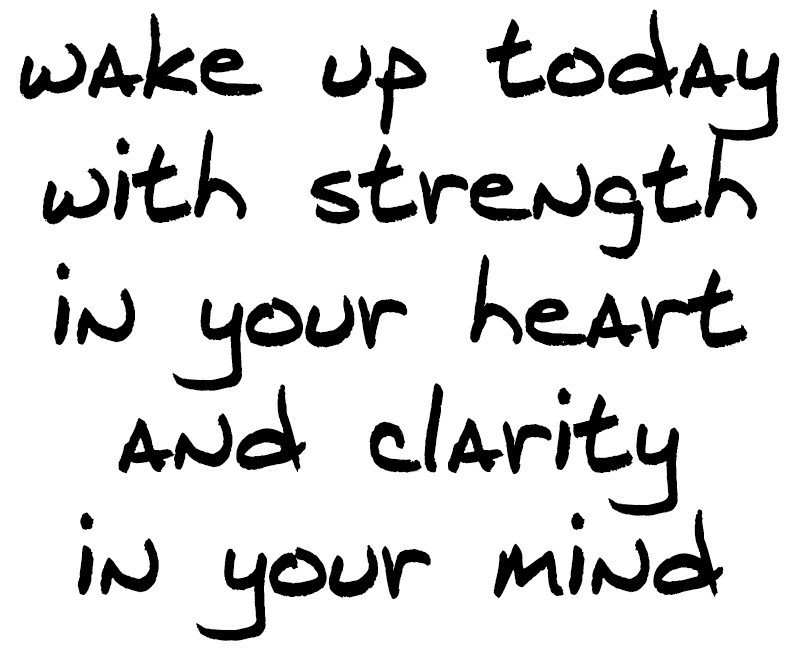 wake up today
with strength
in your heart
and clarity
in your mind